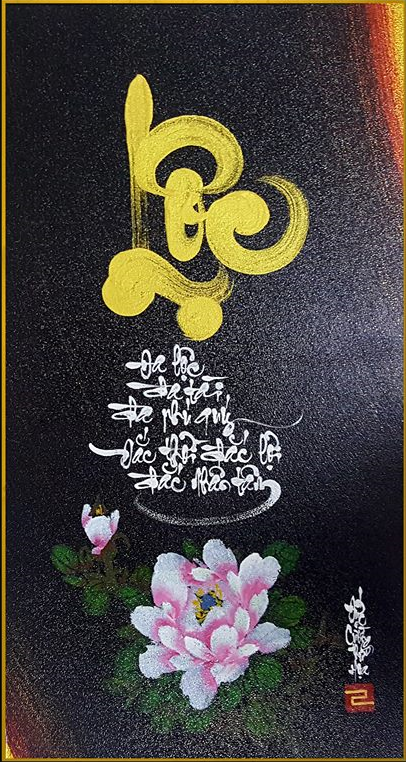 Lộc
Đa lộc
Đa tài
Đa phú quý
Đắc thời đắc lộc
đắc nhân tâm